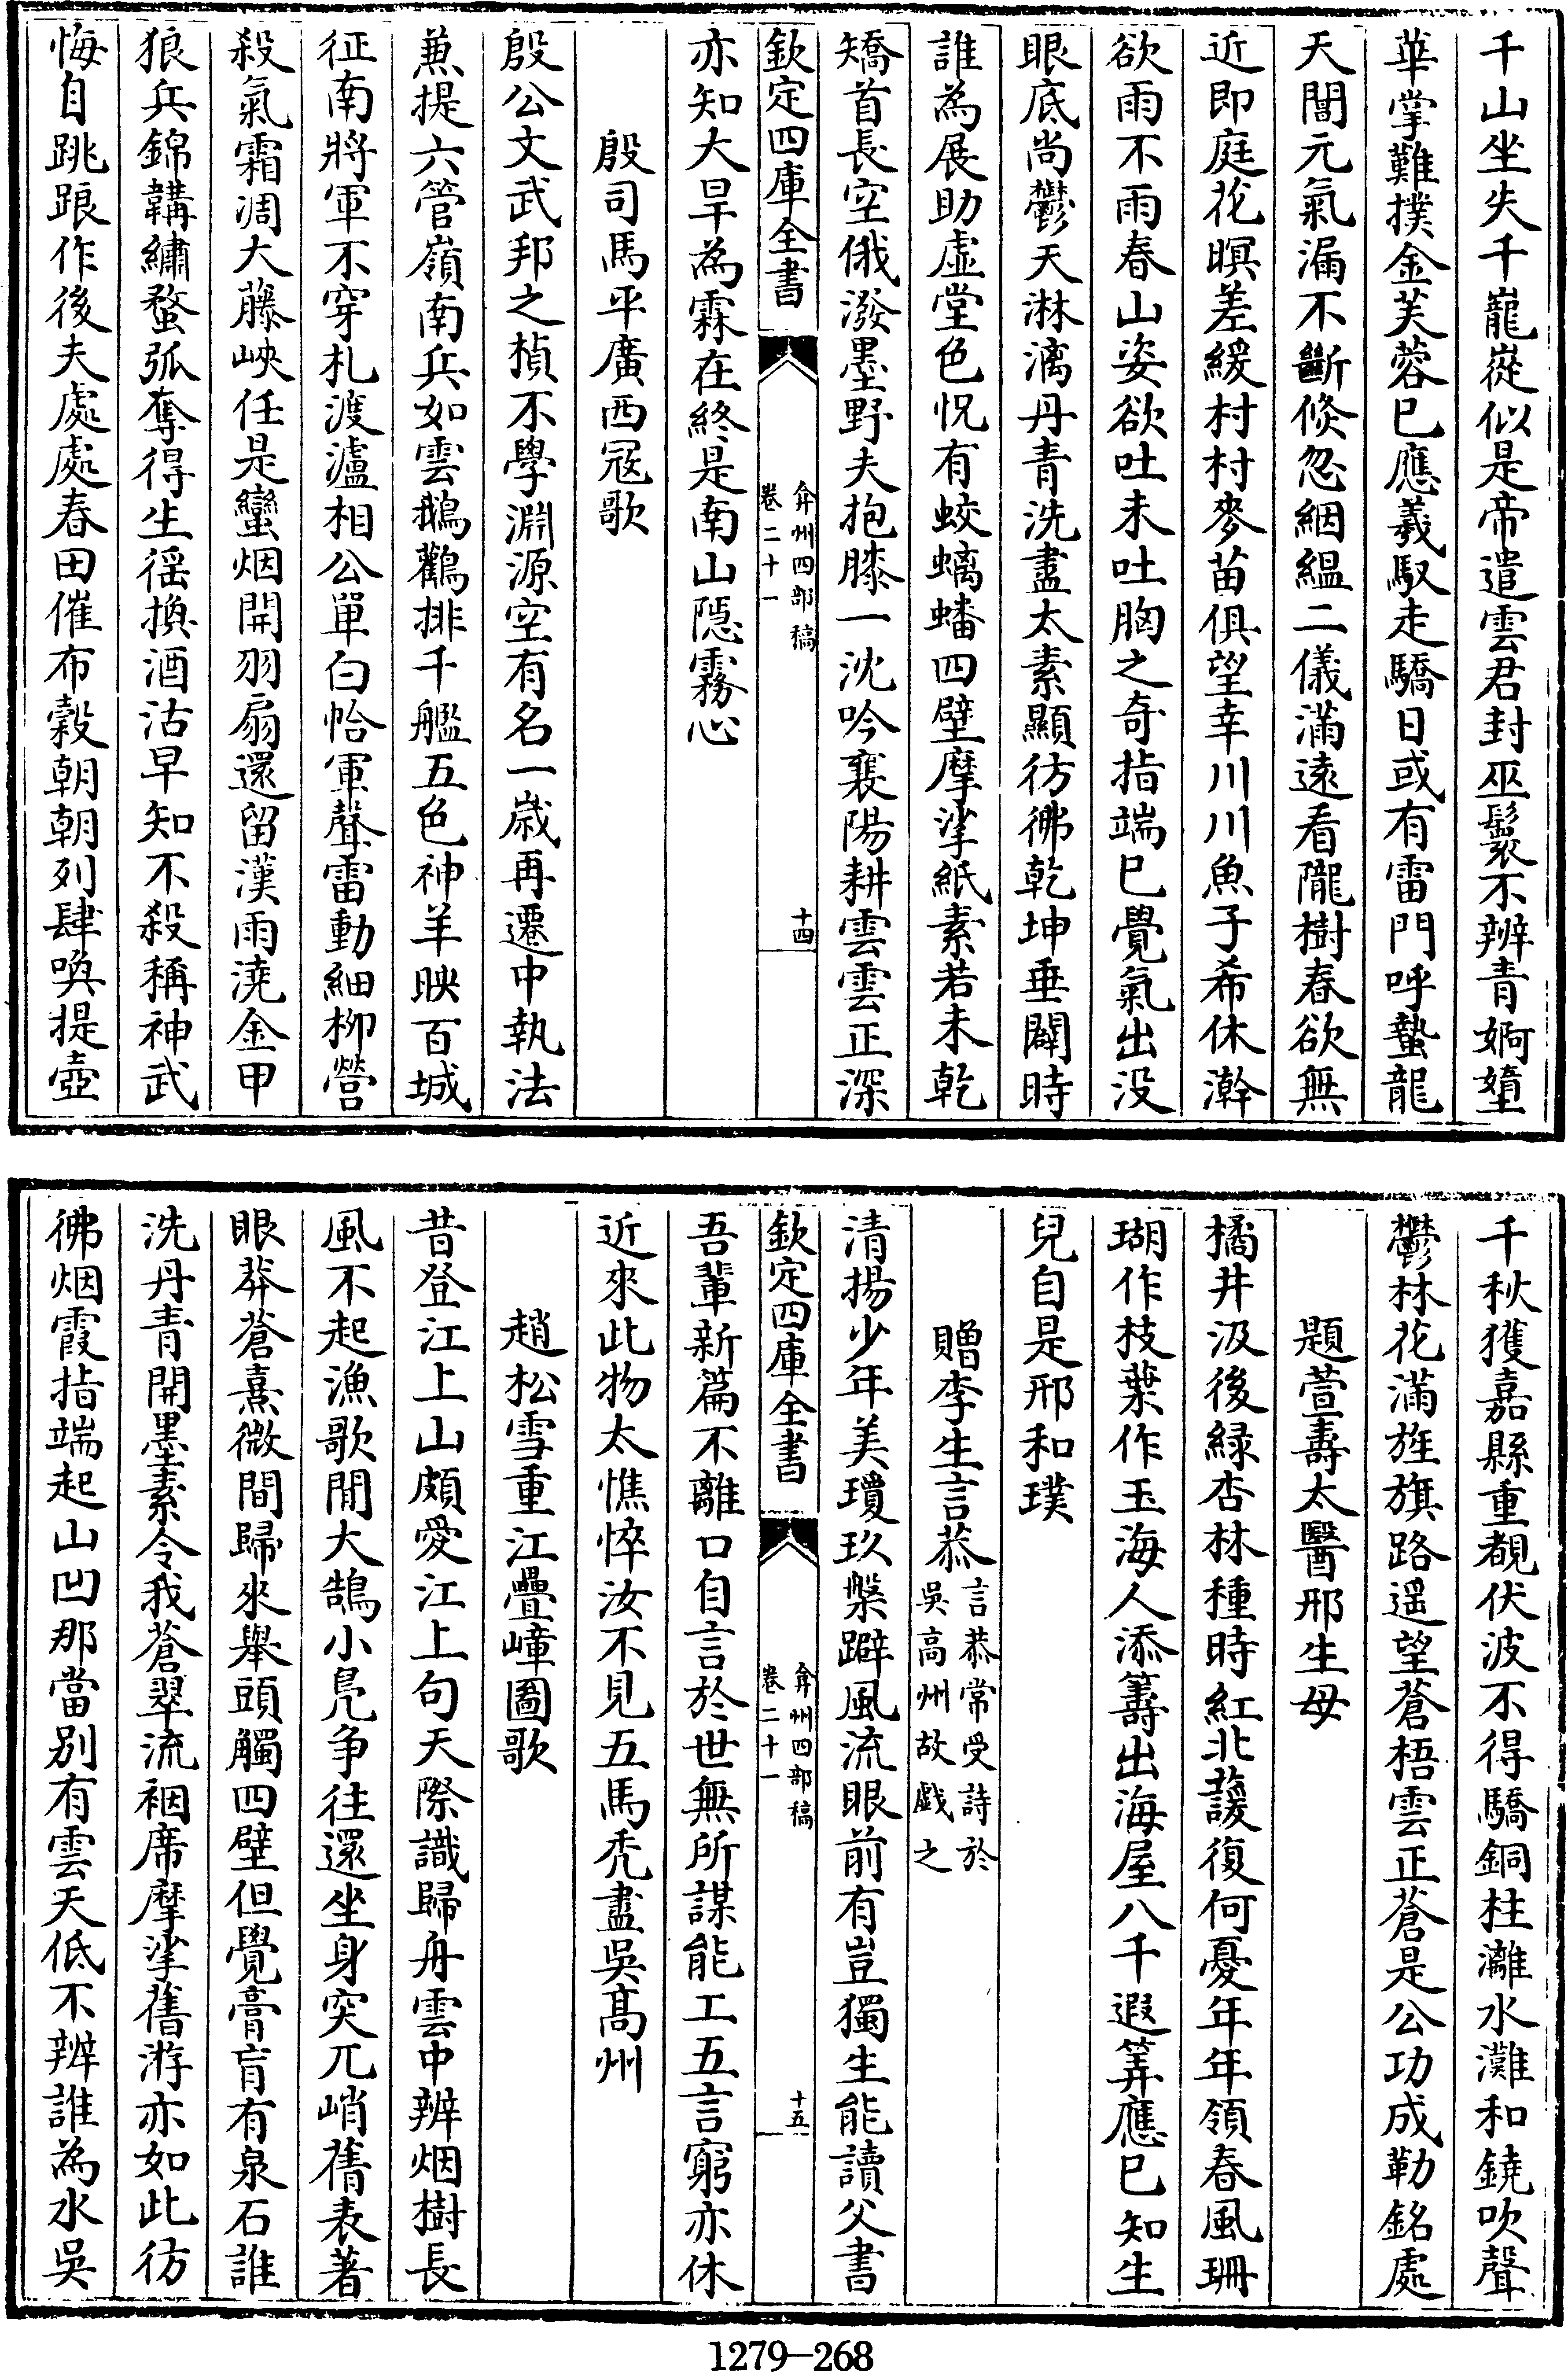 千山坐失千巃嵷似是帝遣雲君封巫鬟不辨青婀嬯
華掌難撲金芙蓉已應羲馭走驕日或有雷門呼蟄龍
天閽元氣漏不斷倐忽絪緼二儀滿遠看隴樹春欲無
近即庭花暝差緩村村麥苗俱望幸川川魚子希休澣
欲雨不雨春山姿欲吐未吐胸之奇指端已覺氣出没
眼底尚鬱天淋漓丹青洗盡太素顯彷彿乾坤垂闢時
誰為展助虚堂色怳有蛟螭蟠四壁摩挲紙素若未乾
矯首長空俄潑墨野夫抱膝一沈吟襄陽耕雲雲正深
欽定四庫全書
弇州四部稿
卷二十一
十四
亦知大旱為霖在終是南山隠霧心
殷司馬平廣西冦歌
殷公文武邦之楨不學淵源空有名一嵗再遷中執法
兼提六管嶺南兵如雲鵝鸛排千艦五色神羊映百城
征南將軍不穿札渡瀘相公單白帢軍聲雷動細柳營
殺氣霜凋大藤峽任是蠻烟開羽扇還留漢雨澆金甲
狼兵錦韝繡蝥弧奪得生徭換酒沽早知不殺稱神武
悔自跳踉作後夫處處春田催布穀朝朝列肆喚提壺
千秋獲嘉縣重覩伏波不得驕銅柱灕水灘和鐃吹聲
鬱林花滿旌旗路遥望蒼梧雲正蒼是公功成勒銘處
題萱壽太醫邢生母
橘井汲後緑杏林種時紅北蘐復何憂年年領春風珊
瑚作枝葉作玉海人添籌出海屋八千遐筭應已知生
兒自是邢和璞
贈李生言恭言恭常受詩於
吳高州故戯之
清揚少年美瓊玖槃躃風流眼前有豈獨生能讀父書
欽定四庫全書
弇州四部稿
卷二十一
十五
吾輩新篇不離口自言於世無所謀能工五言窮亦休
近來此物太憔悴汝不見五馬秃盡吳髙州
趙松雪重江疊嶂圖歌
昔登江上山頗愛江上句天際識歸舟雲中辨烟樹長
風不起漁歌閒大鵠小鳧争往還坐身突兀峭蒨表著
眼莽蒼熹微間歸來舉頭觸四壁但覺膏肓有泉石誰
洗丹青開墨素令我蒼翠流裀席摩挲舊游亦如此彷
彿烟霞指端起山凹那當别有雲天低不辨誰為水吳
1279—268